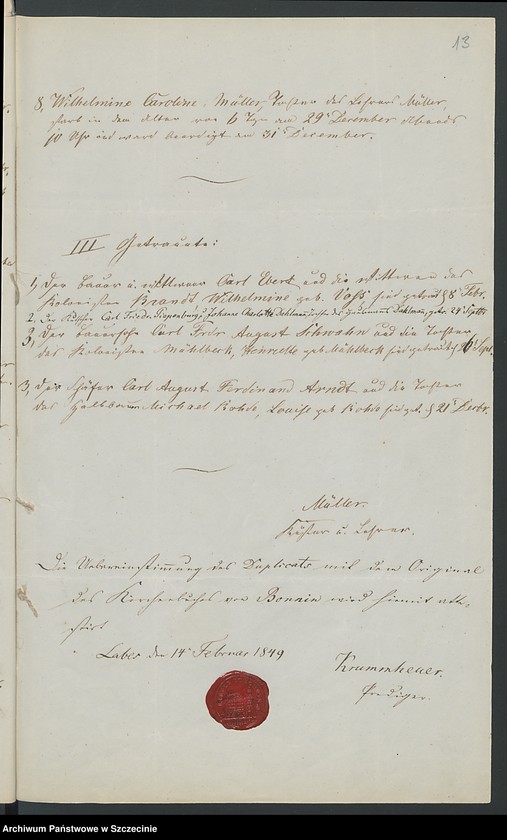 13
8, Wilhelmine Caroline Müller, Tochter des Lehrers Müller,
starb in dem Alter von 6 Tgn am 29t December Abends
10 Uhr und ward beerdigt am 31 December.
III Getraute:
1, Der Bauer u. Wittwer Carl Ebert und die Wittwe des
Kolonisten Brandt Wilhelmine geb. Voß, sind getraut d 8t Febr.
2. Der Kutscher Carl Friedr. Johanne Charlotte Dahlmann Tochter des Dahlmann, getr. 24t Septbr
3, Der Carl Frdr. August Schwahn und die Tochter
des Kolonisten Mühlbeck, Henriette geb. Mühlbeck sind getraut d
3, Der Schäfer Carl August Ferdinand Arndt und die Tochter
des Halbbauern Michael Rohde, Louise geb Rohde sind get. d 21t Decbr.
Müller.
Küster u. Lehrer.
Die Uebereinstimmung des Duplicats mit dem Original
des Kirchenbuches von Bonnin wird hiemit atte-
stirt
Labes den 14t Februar 1849
Krummheuer.
Prediger.
Archiwum Państwowe w Szczecinie